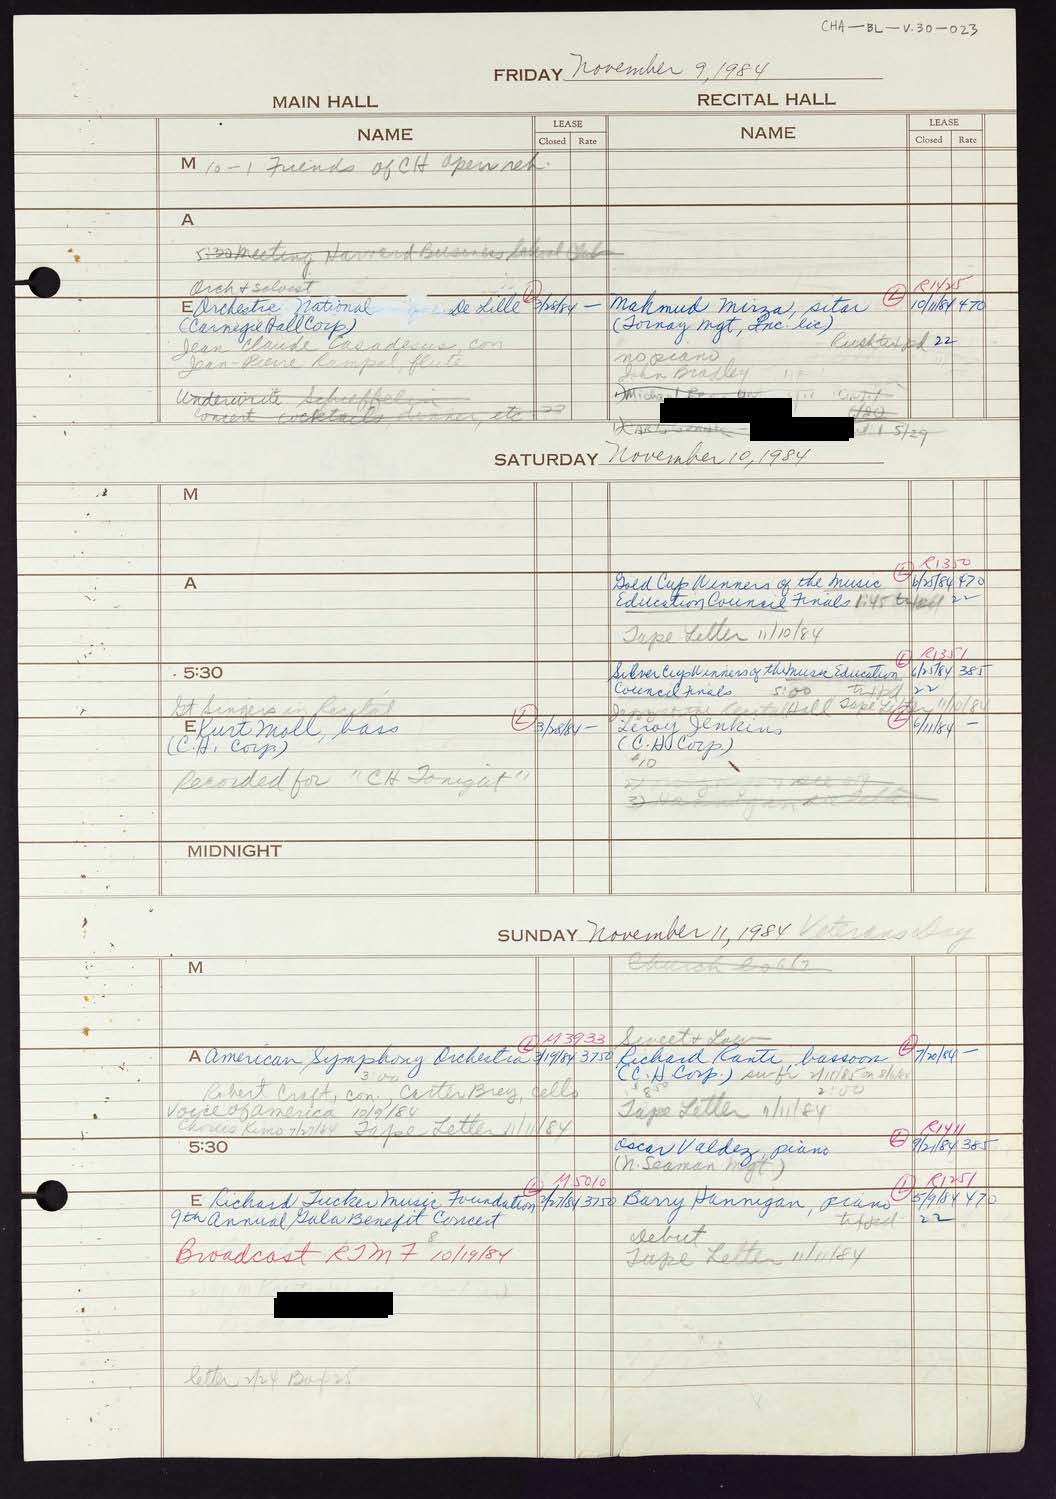 CHA-BL-V.30-023
FRIDAY November 9, 1984
MAIN HALL
RECITAL HALL
NAME
LEASE
Closed Rate
NAME
LEASE
Closed Rate
M 10-1 Friends of CH open reh.
A
5:30 Meeting Harvard Business School Club
Orch & soloist
E Orchestre National De Lille L 3/28/84 —
(Carnegie Hall Corp)
Jean Claude Casadesus, con
Jean-Pierre Rampal, flute
Underwrite Schieffelin
Concert cocktails, dinner, etc
R1425
Mahmud Mirza, sitar L 10/11/84 470
(Tornay Mgt, Inc. lic)
22
no piano
John Bradley
5/29
SATURDAY November 10, 1984
M
A
R1350
Gold Cup Winners of the Music L 6/25/84 470
Education Council Finals 1:45 22
Tape Letter 11/10/84
5:30
R1351
Silver Cup Winners of the Music Education L 6/25/84 385
Council Finals 5:00 22
Tape Letter 11/10/84
Gt Singers in Recital
E Kurt Moll, bass L 3/28/84 —
(C.H. Corp)
Recorded for "CH Tonight"
Leroy Jenkins L 6/11/84 —
(C.H. Corp)
$10
MIDNIGHT
SUNDAY November 11, 1984 Veterans Day
M
Church
M3933
A American Symphony Orchestra L 3/19/84 3750
3:00
Robert Craft, con., Carter Brey, cello
Voice of America 10/9/84
Chorus Rims 7/27/84 Tape Letter 11/11/84
Sweet & Low
Richard Rante, bassoon L 7/20/84 —
(C.H. Corp.)
2:00
Tape Letter 11/11/84
5:30
R1411
Oscar Valdez, piano L 9/21/84 385
(N. Seaman Mgt)
M5010
E Richard Tucker Music Foundation L 2/27/84 3750
9th Annual Gala Benefit Concert
8
Broadcast RTMF 10/19/84
R1251
Barry Hannigan, piano L 5/9/84 470
22
debut
Tape Letter 11/11/84
letter 2/24 Box 25